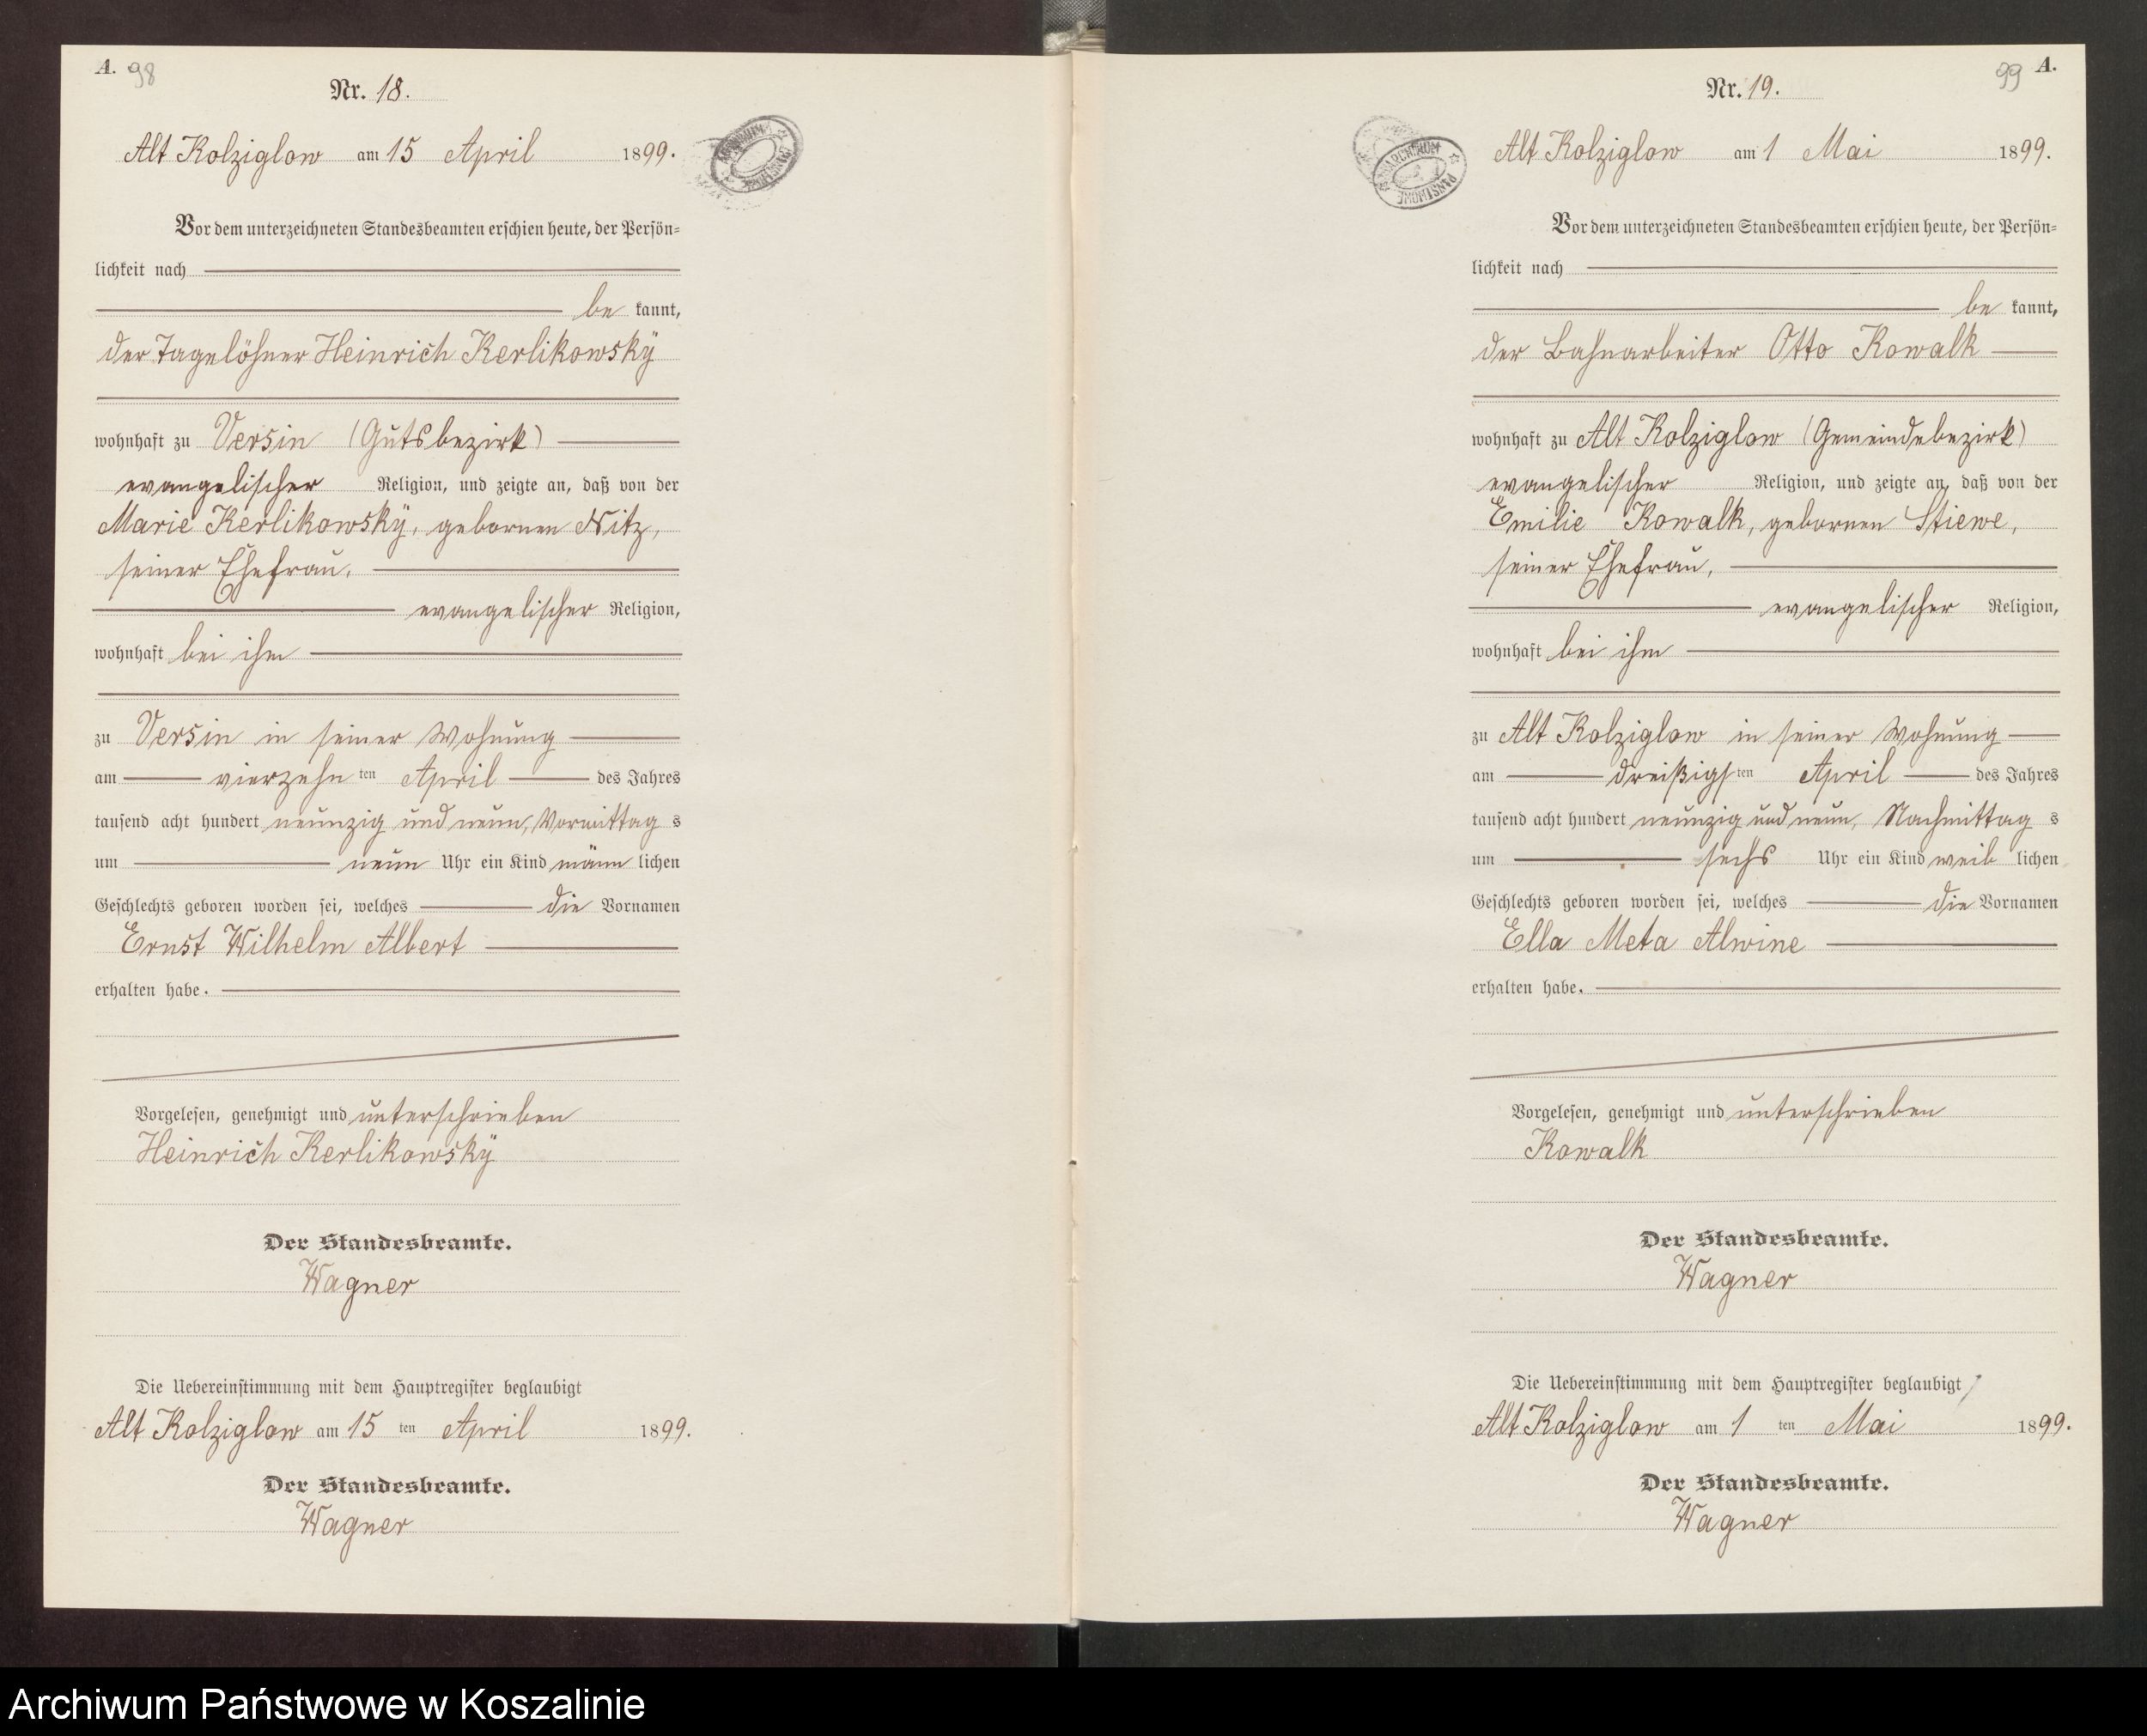 A. 98
Nr. 18.
Alt Kolziglow am 15 April 1899.
Vor dem unterzeichneten Standesbeamten erschien heute, der Persön-
lichkeit nach
be kannt,
der Tagelöhner Heinrich Kerlikowsky
wohnhaft zu Versin (Gutsbezirk)
evangelischer Religion, und zeigte an, daß von der
Marie Kerlikowsky, gebornen Nitz,
seiner Ehefrau,
evangelischer Religion,
wohnhaft bei ihm
zu Versin in seiner Wohnung
am vierzehn ten April des Jahres
tausend acht hundert neunzig und neun, Vormittag s
um neun Uhr ein Kind männ lichen
Geschlechts geboren worden sei, welches die Vornamen
Ernst Wilhelm Albert
erhalten habe.
Vorgelesen, genehmigt und unterschrieben
Heinrich Kerlikowsky
Der Standesbeamte.
Wagner
Die Uebereinstimmung mit dem Hauptregister beglaubigt
Alt Kolziglow am 15 ten April 1899.
Der Standesbeamte.
Wagner
99 A.
Nr. 19.
ARCHIWUM PAŃSTWOWE
Alt Kolziglow am 1 Mai 1899.
Vor dem unterzeichneten Standesbeamten erschien heute, der Persön-
lichkeit nach
be kannt,
der Bahnarbeiter Otto Kowalk
wohnhaft zu Alt Kolziglow (Gemeindebezirk)
evangelischer Religion, und zeigte an, daß von der
Emilie Kowalk, gebornen Stiewe,
seiner Ehefrau,
evangelischer Religion,
wohnhaft bei ihm
zu Alt Kolziglow in seiner Wohnung
am dreißigs ten April des Jahres
tausend acht hundert neunzig und neun, Nachmittag s
um sechs Uhr ein Kind weib lichen
Geschlechts geboren worden sei, welches die Vornamen
Ella Meta Alwine
erhalten habe.
Vorgelesen, genehmigt und unterschrieben
Kowalk
Der Standesbeamte.
Wagner
Die Uebereinstimmung mit dem Hauptregister beglaubigt
Alt Kolziglow am 1 ten Mai 1899.
Der Standesbeamte.
Wagner
Archiwum Państwowe w Koszalinie